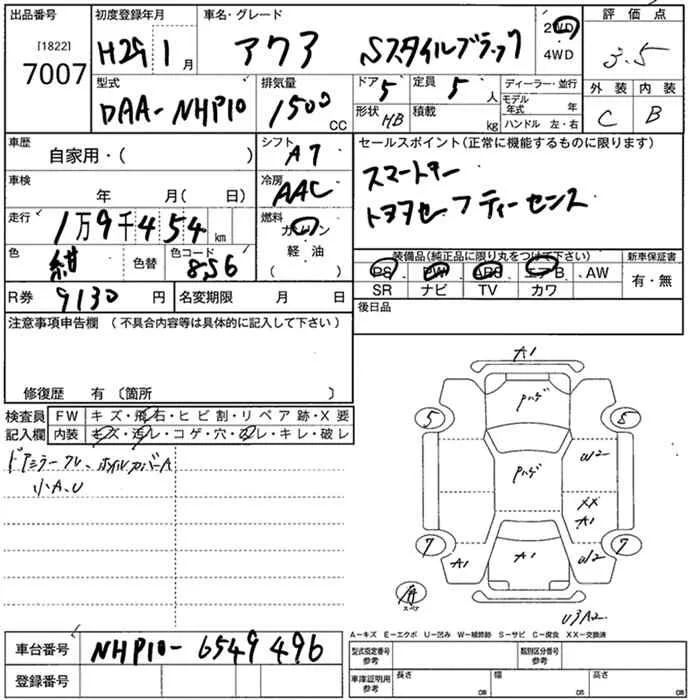 出品番号 初度登録年月 車名・グレード 評価点
[1822]
7007 H29 1月 アクア Sスタイルブラック 2WD 4WD 3.5
型式 排気量 ドア 5 定員 5人 ディーラー・並行 外装 内装
DAA-NHP10 1500CC 形状 HB 積載 kg モデル年式 年 ハンドル 左・右 C B
車歴 自家用・( ) シフト A7 セールスポイント(正常に機能するものに限ります)
車検 年 月( 日) 冷房 AAC スマートキー
走行 1万9千454km 燃料 ガソリン 軽油 ( ) トヨタセーフティーセンス
色 紺 色替 色コード 8S6 装備品(純正品に限り丸をつけて下さい) 新車保証書
PS PW ABS エアB AW 有・無
R券 9130円 名変期限 月 日 SR ナビ TV カワ
注意事項申告欄 (不具合内容等は具体的に記入して下さい) 後日品
修復歴 有 〔箇所 〕
検査員 FW キズ・飛石・ヒビ割・リペア跡・X要
記入欄 内装 キズ・汚レ・コゲ・穴・スレ・キレ・破レ
ドアミラー ホイルカバーA
小A、U
A1
ハゲ
5 5
W2
ハゲ
XX
A1
7 7
A1 A1 W2
スペア
U3 A2
A-キズ E-エクボ U-凹み W-補修跡 S-サビ C-腐食 XX-交換済
車台番号 NHP10-6549496
登録番号
型式指定番号 参考 類別区分番号 参考
車庫証明用 参考 長さ cm 幅 cm 高さ cm